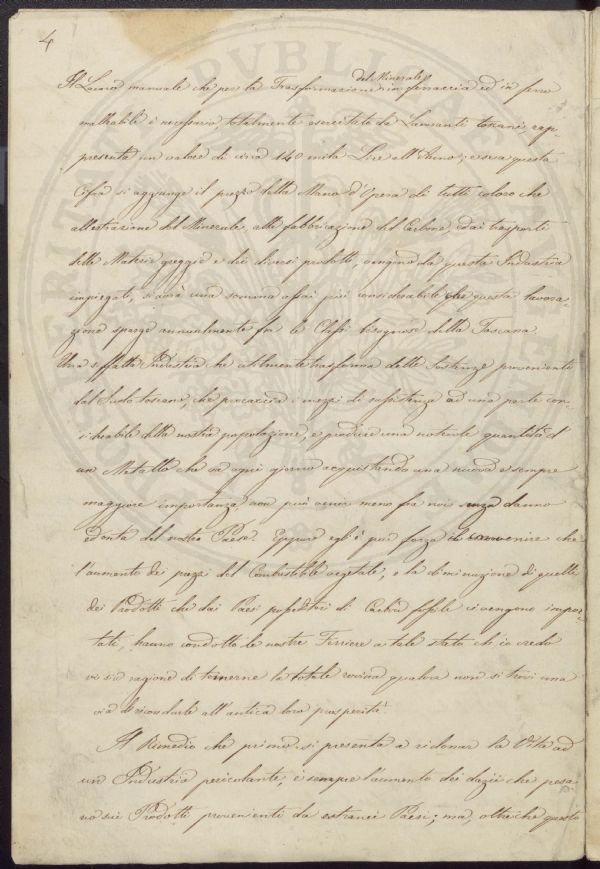 4
Il Lavoro manuale che per la Trasformazione del Minerale in ferraccia ed in ferro
malleabile è necessario, totalmente esercitato da Lavoranti toscani, rap-
presenta un valore di circa 140 mila Lire all'Anno; e se a questa
Cifra si aggiunge il prezzo della Mano d'Opera di tutti coloro che
all'estrazione del Minerale, alla fabbricazione del Carbone, ed ai trasporti
delle Materie greggie e dei diversi prodotti, vengono da questa Industria
impiegati, si avrà una somma assai più considerabile che questa lavora-
zione sparge annualmente fra le Classi bisognose della Toscana.
Una siffatta Industria che utilmente trasforma delle Sostanze provenienti
dal Suolo toscano, che procaccia i mezzi di sussistenza ad una parte con-
siderabile della nostra popolazione, e produce una notevole quantità d
un Metallo che va ogni giorno acquistando una nuova e sempre
maggiore importanza non può venir meno fra noi senza danno
ed onta del nostro Paese. Eppure egli è pur forza convenire che
l'aumento dei prezzi del Combustibile vegetale, e la diminuzione di quelli
dei Prodotti che dai Paesi possessori di Carbon fossile ci vengono impor-
tati, hanno condotto le nostre Ferriere a tale stato che io credo
vi sia ragione di temerne la totale rovina qualora non si trovi una
via di ricondurle all'antica loro prosperità.
Il Rimedio che primo si presenta a ridonar la Vita ad
un Industria pericolante, è sempre l'aumento dei dazii che pesa-
no sui Prodotti provenienti da estranei Paesi; ma, oltre che questo